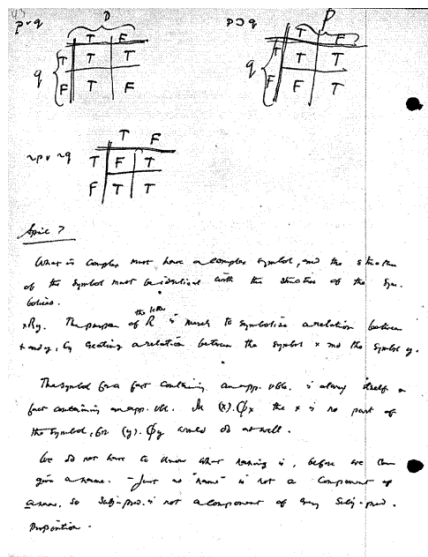 p v q
p
T F
q
T T T
F T F
p ⊃ q
p
T F
q
T T T
F F T
T F
~p v ~q T F T
F T T
April 7
What is complex must have a complex symbol, and the structure
of the symbol must be identical with the structure of the sym-
bolised.
the letter
xRy. The purpose of R is merely to symbolise a relation between
x and y, by creating a relation between the symbol x and the symbol y.
The symbol for a fact containing an app. vble. is always itself a
fact containing an app. vble. In (x).ϕx the x is no part of
the symbol, for (y).ϕy would do as well.
We do not have to know what naming is, before we can
give a name. – Just as "name" is not a component of
a name, so Subj-pred. is not a component of any Subj-pred.
Proposition.